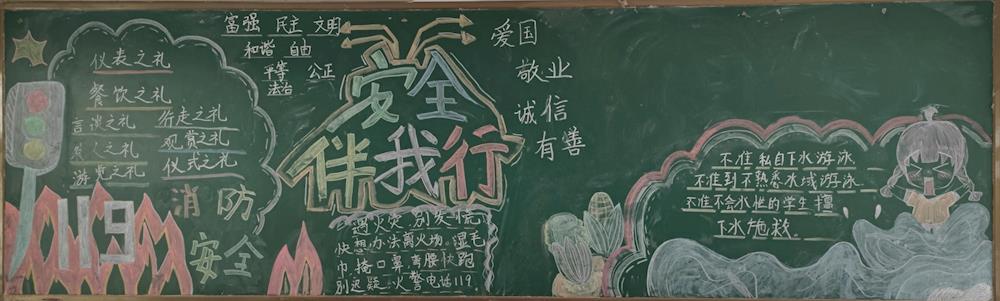 仪表之礼
餐饮之礼
言谈之礼 行走之礼
待人之礼 观赏之礼
游览之礼 仪式之礼
119
消防
安全
富强 民主 文明
和谐 自由
平等 公正
法治
安全
伴我行
爱国
敬业
诚信
有善
遇火灾，别发慌
快想办法离火场。湿毛
巾掩口鼻弯腰快跑
别迟疑，火警电话119.
不准私自下水游泳
不准到不熟悉水域游泳
不准不会水性的学生擅
下水施救.